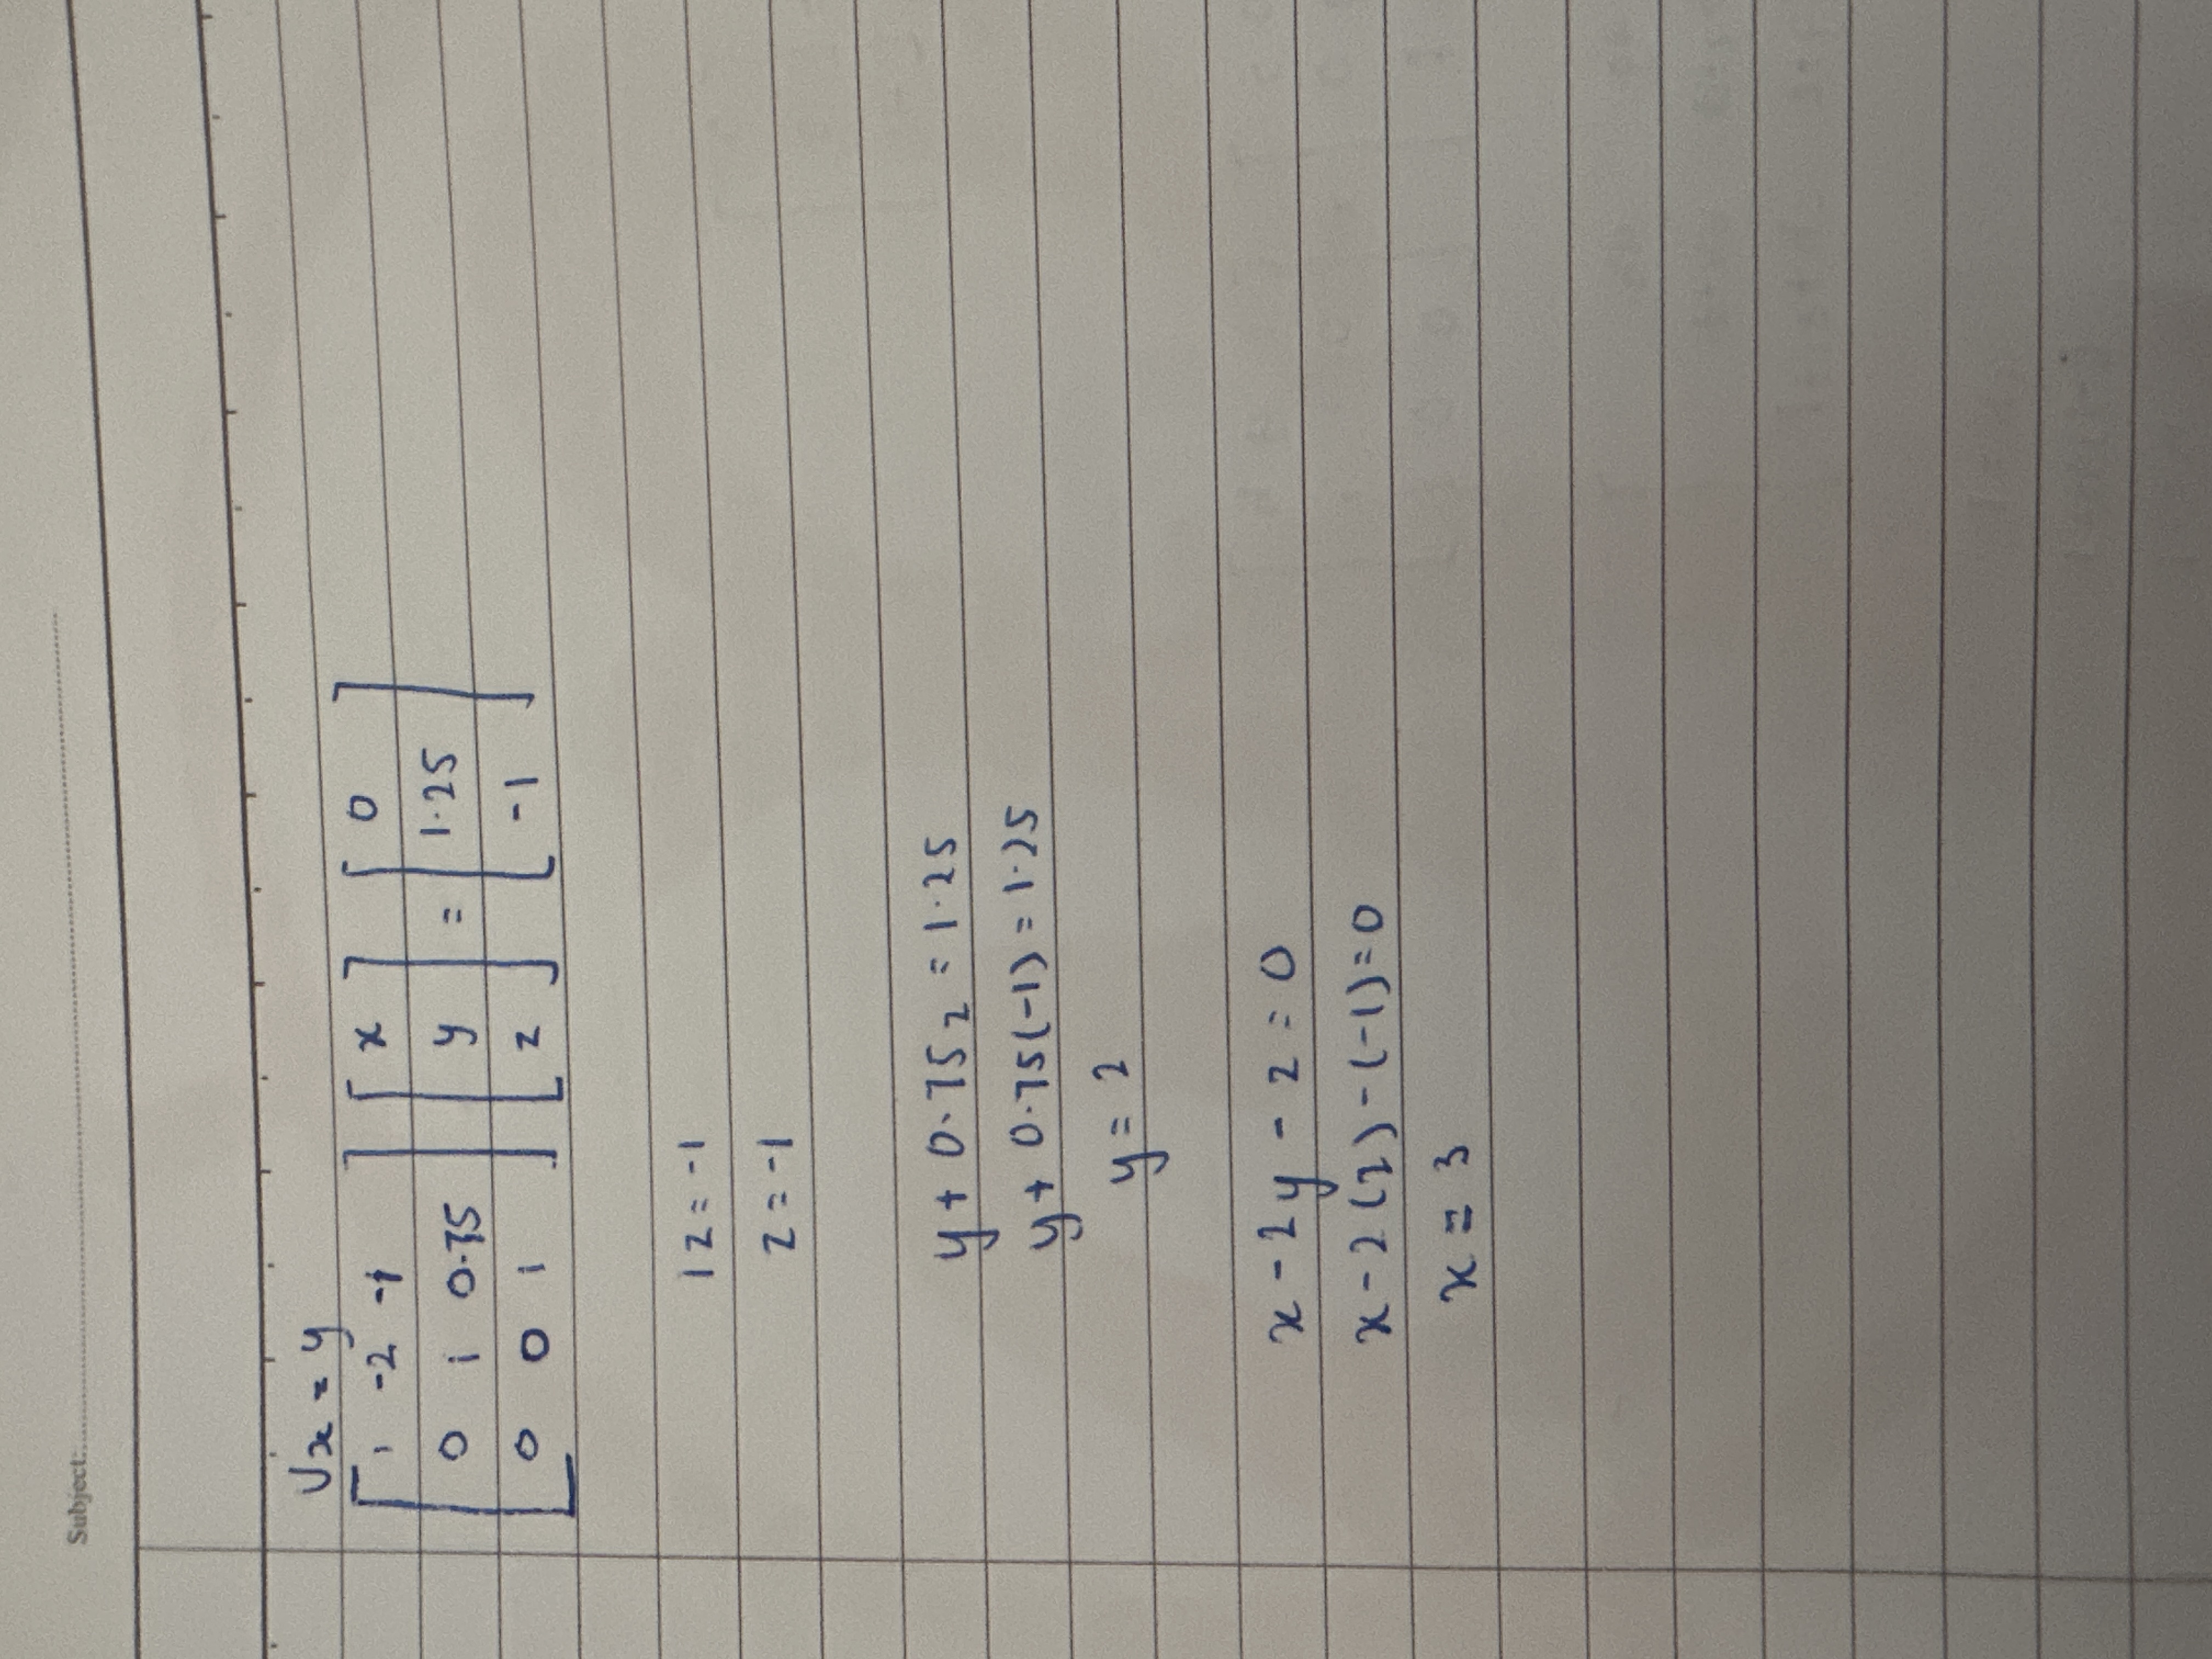 Subject:
Ux = y
[ 1 -2 -1 ] [ x ] [ 0 ]
0 1 0.75 y = 1.25
[ 0 0 1 ] [ z ] [ -1 ]
1z = -1
z = -1
y + 0.75z = 1.25
y + 0.75(-1) = 1.25
y = 2
x - 2y - z = 0
x - 2(2) - (-1) = 0
x = 3